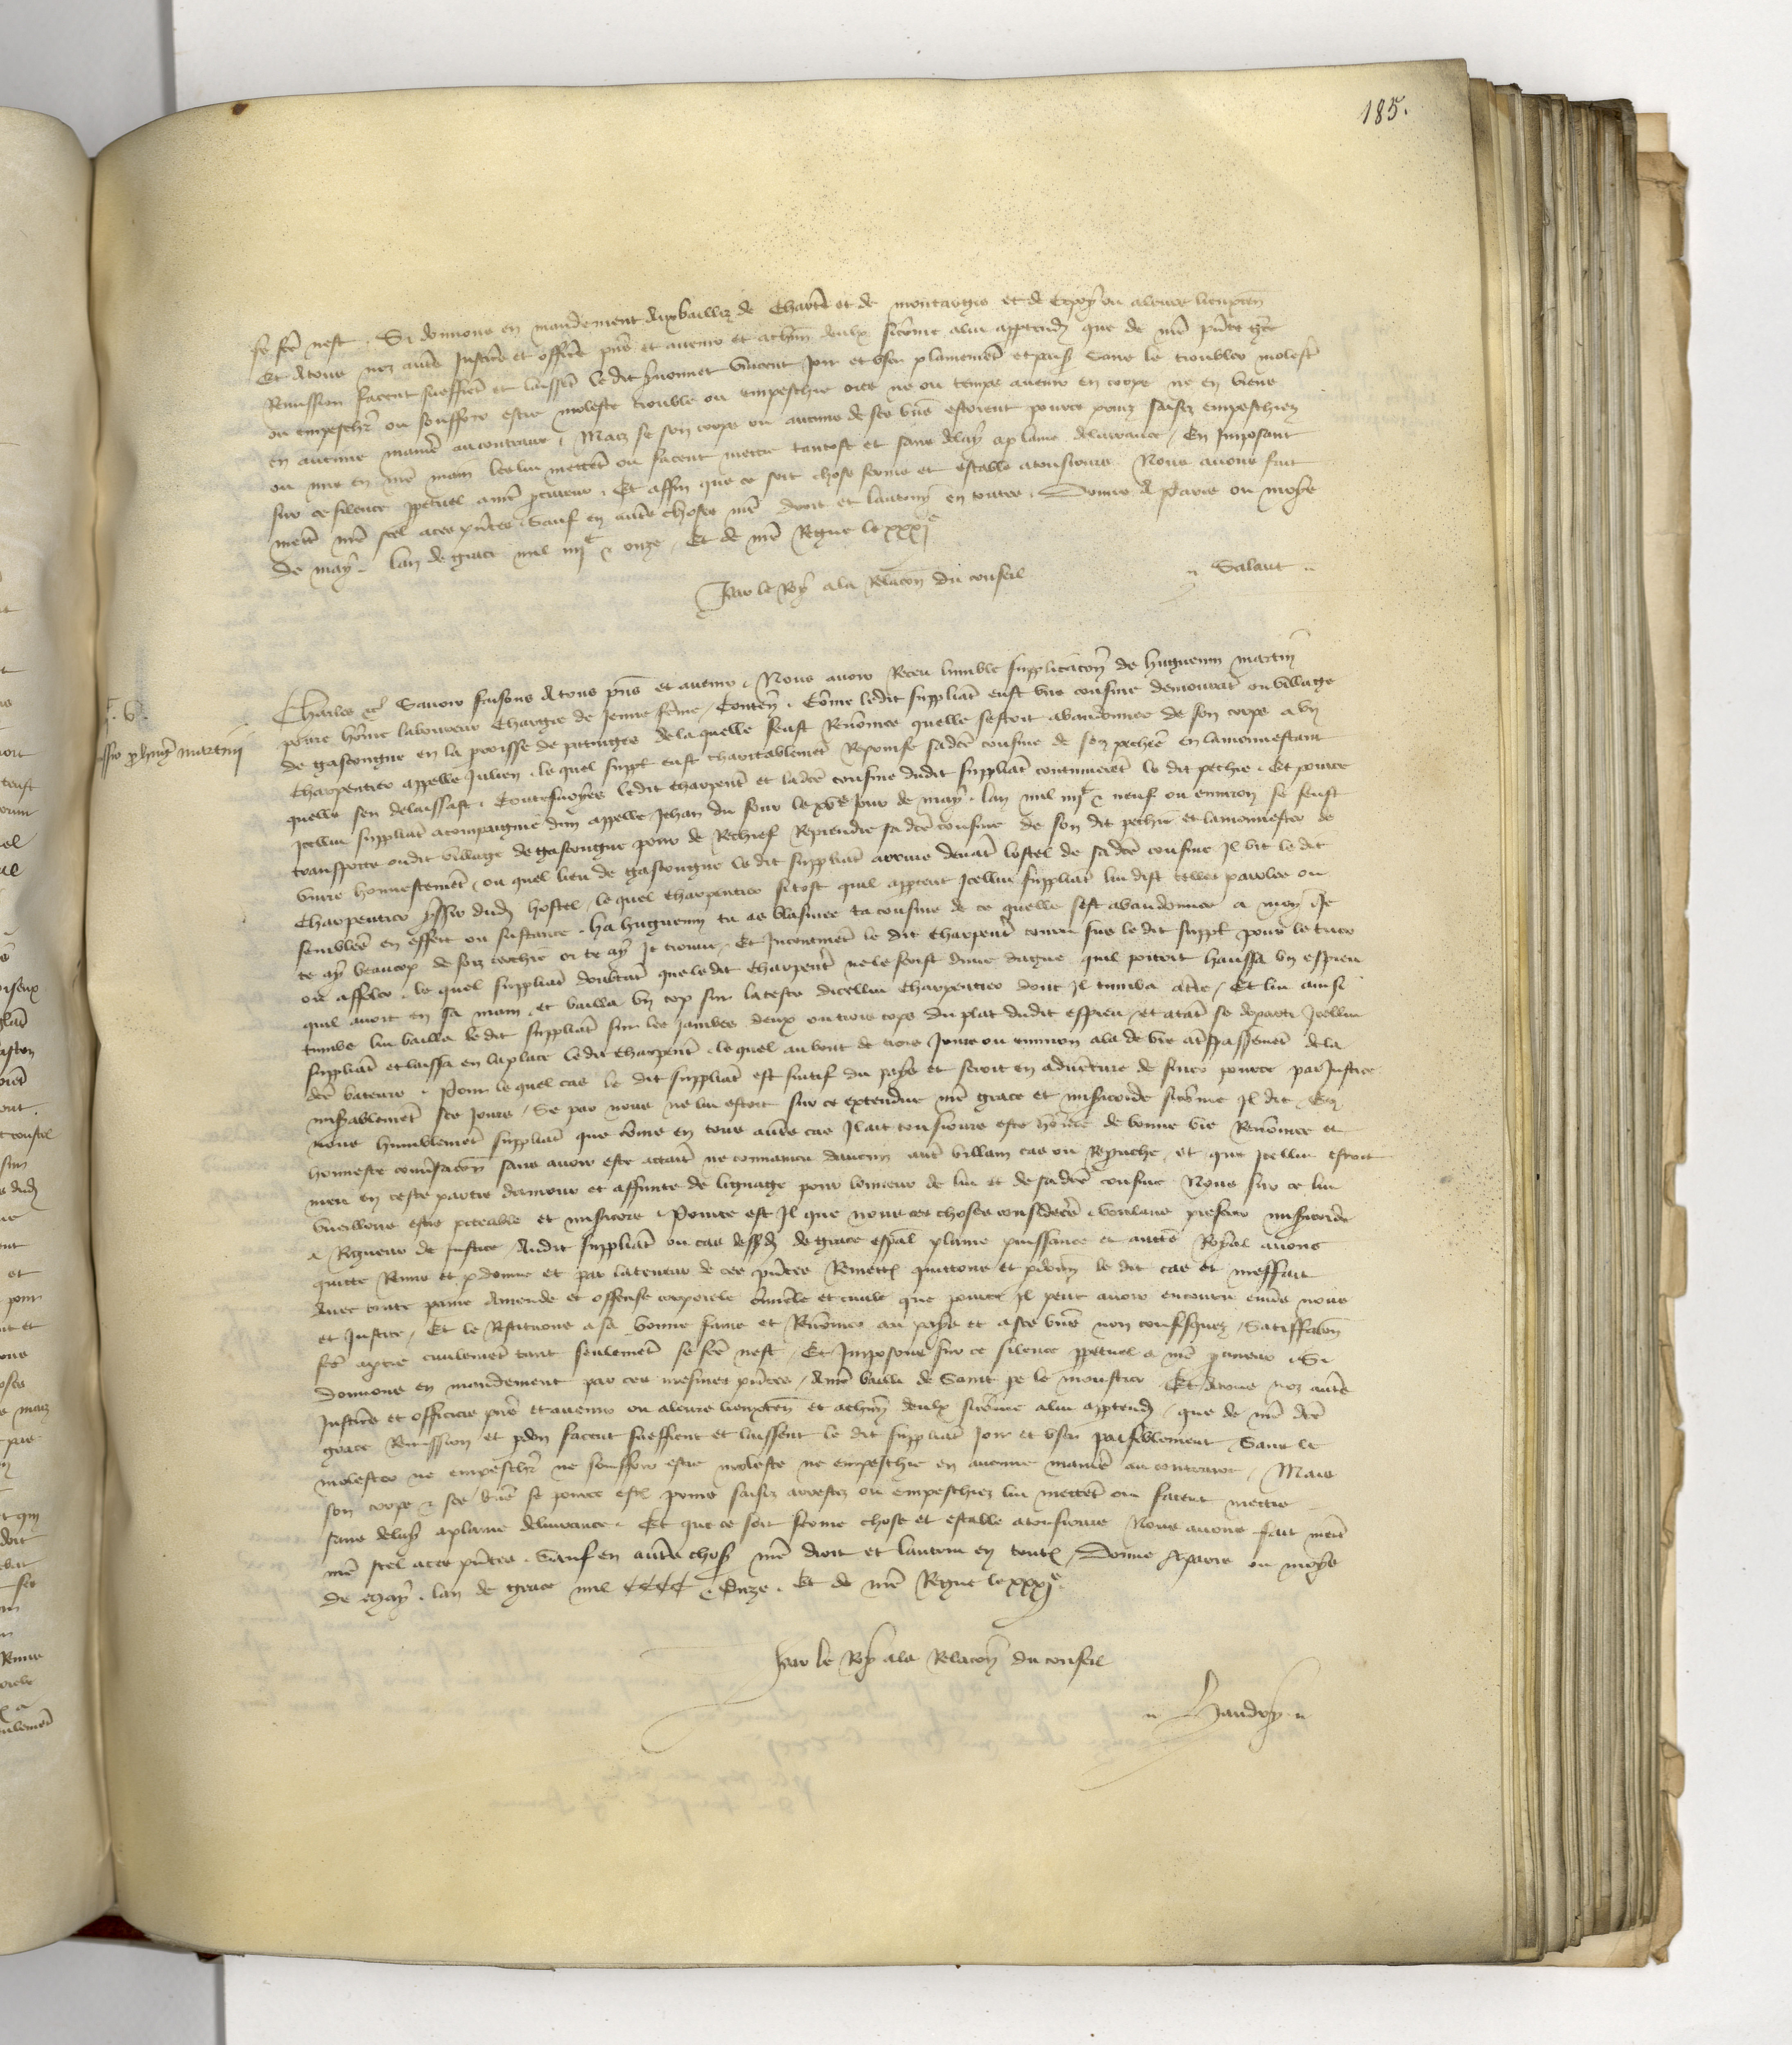 185.
se fce nest. Si donnons en mandement aux bailliz de Chartres et de montargis et de Cepoy ou a leurs lieuxten
Et a tous noz autres Justic et officiers pns et avenir et a chun deulx sicome a lui appartendra que de nre pnte grace
Remission facent sueffrent et laissent le dit vincent Joir et user plainement et paisiblement Sans le troubler molester
ou empeschier ou souffrir estre moleste trouble ou empeschie ores ne ou temps avenir en corps ne en biens
en aucune maniere au contraire. Maiz se son corps ou aucuns de ses biens estoient pource prins saisiz empeschiez
ou mis en nre main les lui mettent ou facent mettre tantost et sans delay a plaine delivrance. En Imposant
sur ce silence ppetuel a nre procureur. Et affin que ce soit chose ferme et estable a tousiours Nous avons fait
mettre nre scel a ces pntes Sauf en autres choses nre droit et lautruy en toutes. Donne A Paris ou moys
de may. lan de grace mil iiijc & onze. Et de nre Regne le xxxje
Par le Roy a la Relacion du conseil Salaut

ssio p hug martin
Charles &c Savoir faisons A tous pns et avenir. Nous avoir Receu lumble supplicacion de huguenin martin
povre home laboureur Chargie de Jeune feme, Conten. Come ledit suppliant eust une cousine demourant ou village
de gascongne en la parroisse de de laquelle feust Renomee quelle sestoit abandonnee de son corps a un
Charpentier appelle Julien. le quel suppt eust charitablement Reprinse sa dce cousine de son pechie en lamonnestant
quelle sen delaissast. Toutesvoyes ledit charpent et la dce cousine dudit suppliant continuerent le dit pechie. Et pource
Icellui suppliant acompaignie dun appelle Jehan du four le xve Jour de may. lan mil iiijc & neuf ou environ se feust
transporte oudit village de gascongne pour de Rechief Reprendre sa dce cousine de son dit pechie et lamonnester de
vivre honnestement, ou quel lieu de gascongne le dit suppliant arrive devant lostel de sa dce cousine Il vit le dit
Charpentier yssir dud hostel, le quel charpentier sitost quil appceut Icellui suppliant lui dist telles paroles ou
semblables en effect ou sustance. ha huguenin tu as blasmee ta cousine de ce quelle sest abandonnee a moy Je
te ay beaucop de foiz cerchie or te ay Je trouve. Et Incontinent le dit charpent couru sus le dit suppt pour le tuer
ou affoler. le quel suppliant doubtant que le dit charpentier ne le ferist dune dague quil portoit haussa un espieu
quil avoit en sa main et bailla un cop sur la teste dicellui charpentier dont Il tumba a terre, Et lui ainsi
tumbe lui bailla le dit suppliant sur les jambes deux ou trois cops du plat dudit espieu, et atant se departi Icellui
suppliant et laissa en la place le dit charpent. le quel au bout de trois Jours ou environ ala de vie a trespassement de la
dce bateure. Pour le quel cas le dit suppliant est fuitif du pays et seroit en adventure de finer pource par Justice
miserablement ses Jours, Se par nous ne lui estoit sur ce extendue nre grace et misericorde sicome Il dit. En
nous humblement suppliant que come en tous autres cas Il ait tousiours este home de bonne vie Renomee et
honneste conversacion sans avoir este attaint ne convaincu daucun autre villain cas ou Reprouche, et que Icellui estoit
meu en ceste partie damour et affinite de lignage pour lonneur de lui et de sa dce cousine Nous sur ce lui
vueillons estre piteable et misericors. Pource est Il que nous ces choses considerees, voulans preferer misericorde
a Rigueur de Justice Audit suppliant ou cas dessusd de grace espal plaine puissance et auctorite Royal avons
quitte Remis et pdonne et par la teneur de ces pntes Remettons quittons et pdonnons le dit cas et meffait
Avec toute paine Amende et offense corporele criminele et civile que pource Il peut avoir encouru envers nous
et Justice, Et le Restituons a sa bonne fame et Renomee au pays et a ses biens non confisquez, Satisfacion
fce a partie civilement tant seulement se fce nest, Et Imposons sur ce silence ppetuel a nre procureur. Si
donnons en mandement par ces mesmes pntes, Au bailli de Saint pe le moustier Et A tous noz autres
Justiciers et officiers pns et avenir ou a leurs lieuxten et a chun deulx sicome a lui appartendra, que de nre dce
grace Remission et pdon facent sueffrent et laissent le dit suppliant Joir et user paisiblement, Sans le
molester ne empeschier ne souffrir estre moleste ne empeschie en aucune maniere au contraire, Mais
son corps & ses biens se pource estoient prins saisiz arrestez ou empeschiez lui mettent ou facent mettre
sans delay a plaine delivrance. Et que ce soit ferme chose et estable a tousiours Nous avons fait mettre
nre scel a ces pntes. Sauf en autres choses nre droit et lautrui en toutes, Donne A paris ou moys
de May. lan de grace mil CCCC & Onze. Et de nre Regne le xxxje
Par le Roy a la Relacion du conseil